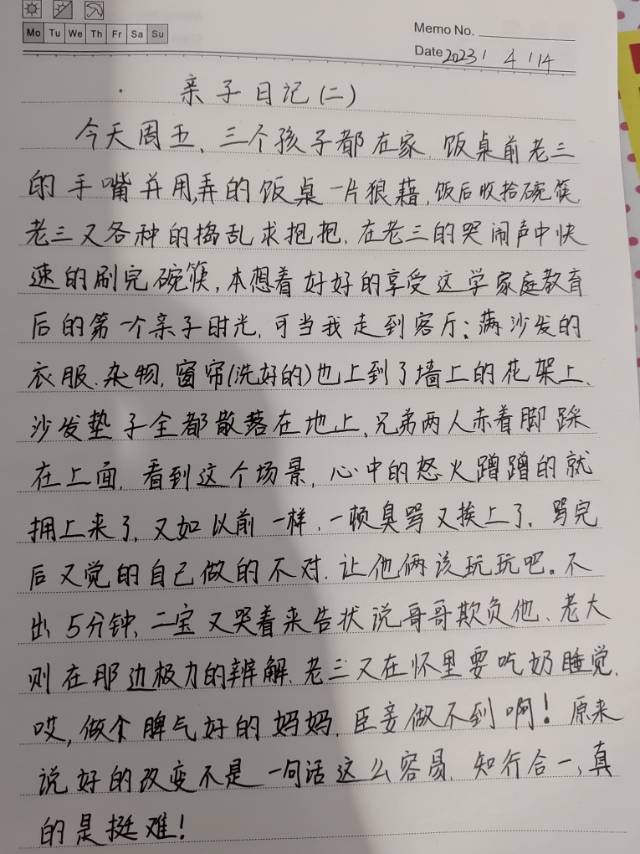 Mo Tu We Th Fr Sa Su
Memo No.
Date 2023 / 4 / 14
亲子日记(二)
今天周五、三个孩子都在家,饭桌前老三
的手嘴并用,弄的饭桌一片狼藉,饭后收拾碗筷,
老三又各种的捣乱求抱抱,在老三的哭闹声中快
速的刷完碗筷,本想着好好的享受这学家庭教育
后的第一个亲子时光,可当我走到客厅:满沙发的
衣服、杂物,窗帘(洗好的)也上到了墙上的花架上、
沙发垫子全都散落在地上,兄弟两人赤着脚踩
在上面,看到这个场景,心中的怒火蹭蹭的就
拥上来了,又如以前一样,一顿臭骂又挨上了,骂完
后又觉的自己做的不对,让他俩该玩玩吧。不
出5分钟、二宝又哭着来告状说哥哥欺负他、老大
则在那边极力的辨解,老三又在怀里要吃奶睡觉,
哎,做个脾气好的妈妈,臣妾做不到啊!原来
说好的改变不是一句话这么容易,知行合一、真
的是挺难!